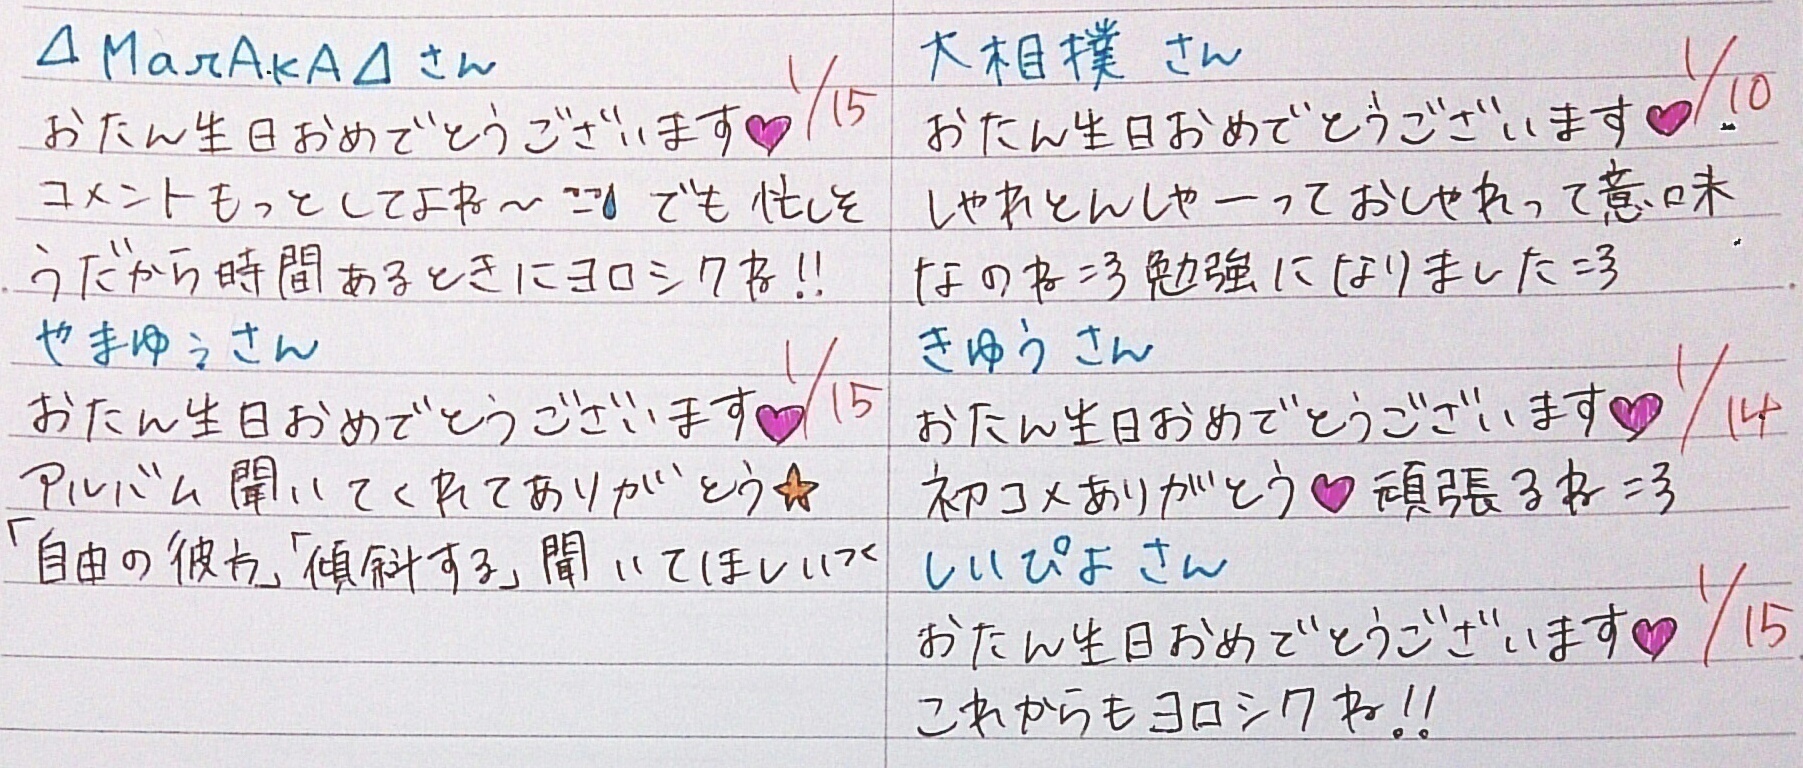 Δ MarAKAΔ さん
1/15
おたん生日おめでとうございます♥
コメントもっとしてよね〜 でも忙しそ
うだから時間あるときにヨロシクね!!
やまゆぅさん
1/15
おたん生日おめでとうございます♥
アルバム聞いてくれてありがとう☆
「自由の彼方」「傾斜する」聞いてほしいっく
大相撲 さん
1/10
おたん生日おめでとうございます♥
しゃれとんしゃーっておしゃれって意味
なのね=3 勉強になりました=3
きゆう さん
1/14
おたん生日おめでとうございます♥
初コメありがとう♥ 頑張るね=3
しいぴよ さん
1/15
おたん生日おめでとうございます♥
これからもヨロシクね!!